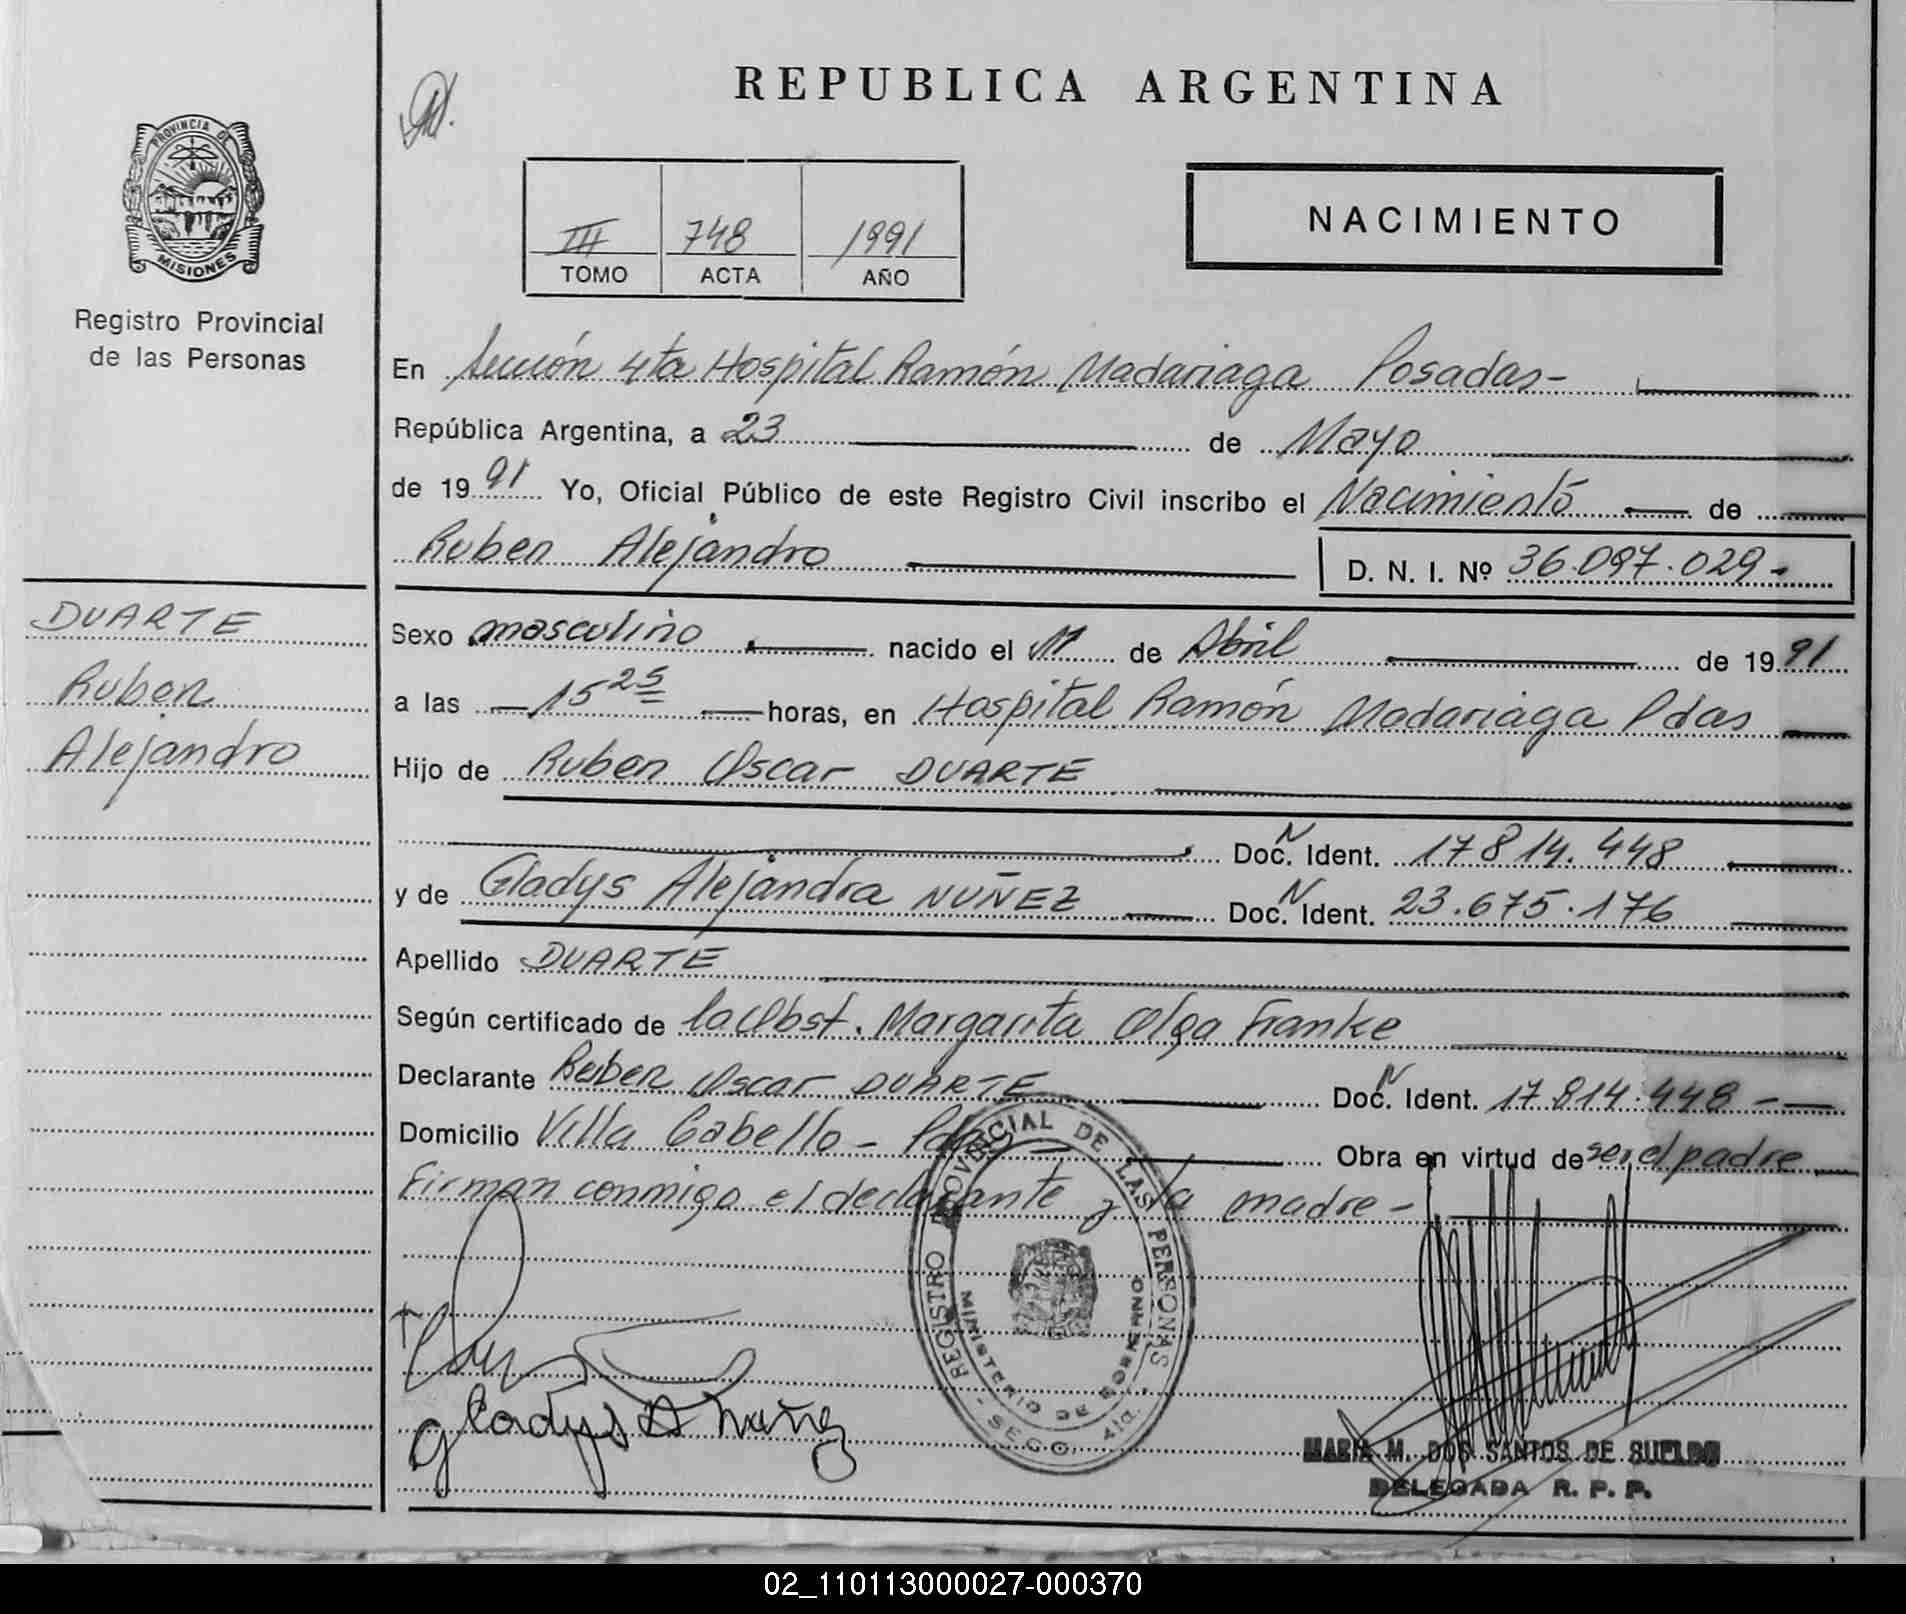 REPUBLICA ARGENTINA
PROVINCIA DE
MISIONES
Registro Provincial
de las Personas
III 748 1991
TOMO ACTA AÑO
NACIMIENTO
En Sección 4ta Hospital Ramón Madariaga Posadas-
República Argentina, a 23 de Mayo
de 1991 Yo, Oficial Público de este Registro Civil inscribo el Nacimiento de
Ruben Alejandro D. N. I. Nº 36.097.029-
DUARTE
Ruben
Alejandro
Sexo masculino nacido el 11 de Abril de 1991
a las 15 25 horas, en Hospital Ramón Madariaga Pdas
Hijo de Ruben Oscar DUARTE
Doc. N Ident. 17.814.448
y de Gladys Alejandra NUÑEZ Doc. N Ident. 23.675.176
Apellido DUARTE
Según certificado de la Obst. Margarita Olga Franke
Declarante Ruben Oscar DUARTE Doc. N Ident. 17.814.448 -
Domicilio Villa Cabello - Pdas Obra en virtud de ser el padre
Firman conmigo el declarante y la madre -
REGISTRO PROVINCIAL DE LAS PERSONAS
MINISTERIO DE GOBIERNO
- SECC. 4ta.
Gladys A Nuñez
MARIA M. DOS SANTOS DE SUELDO
DELEGADA R. P. P.
02_110113000027-000370